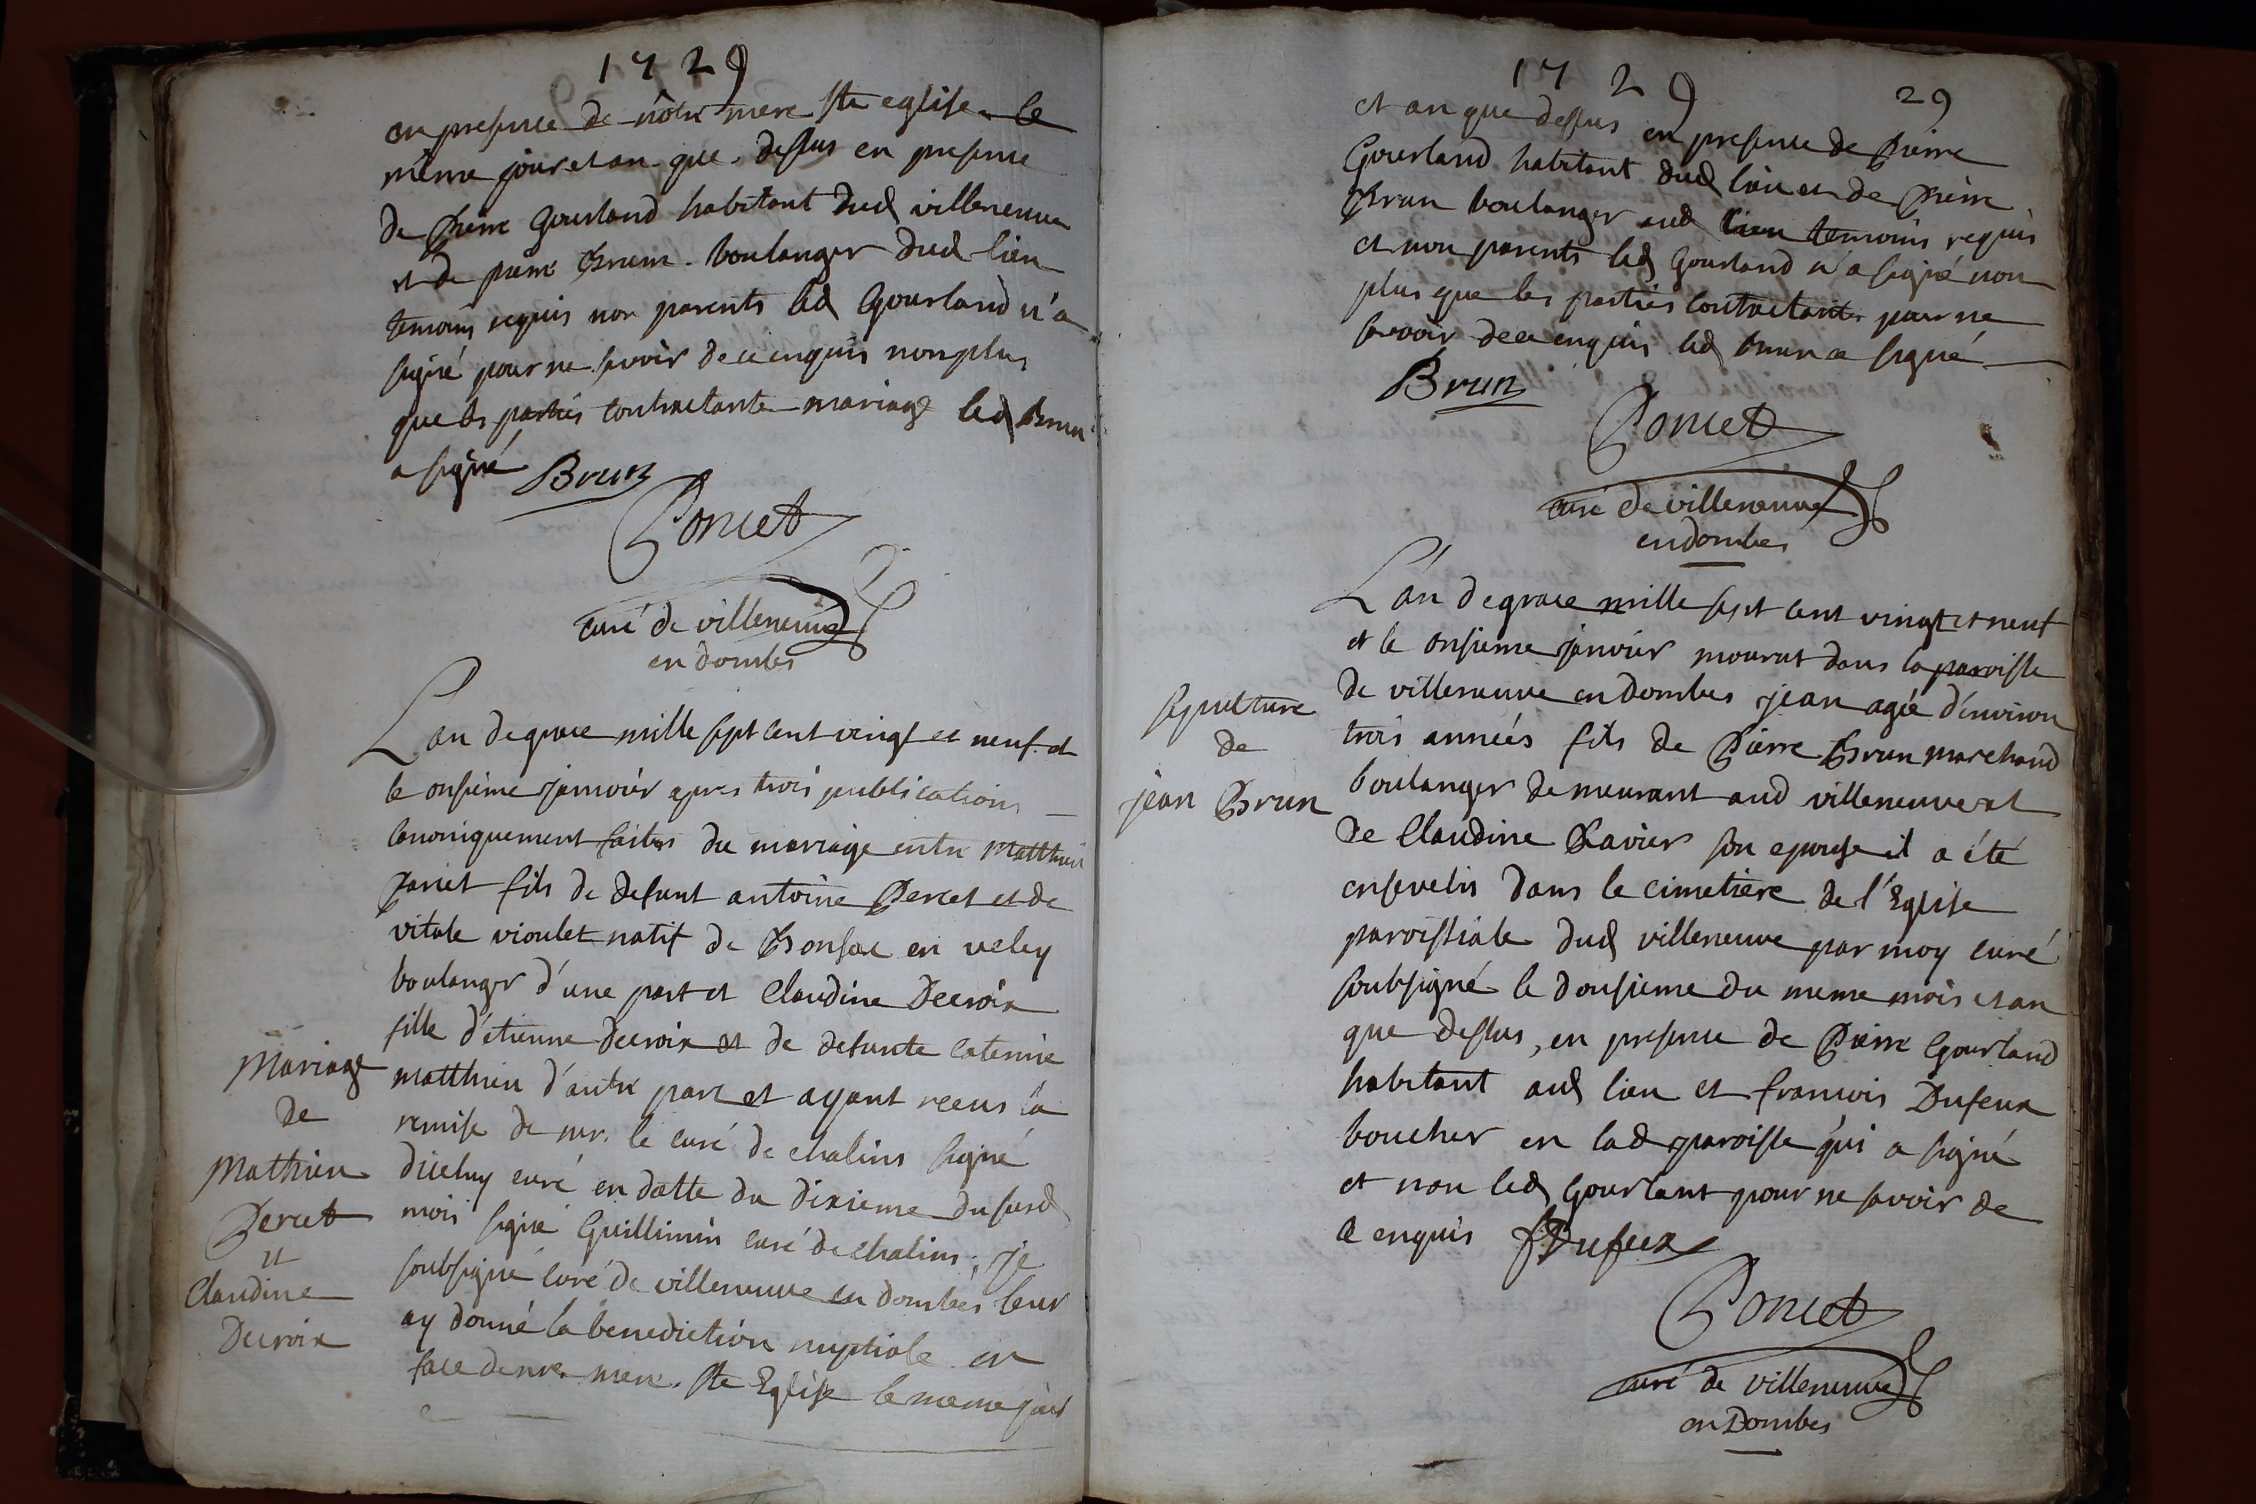 1729
en presence de nôtre mere ste eglise le
même jour et an que dessus en presence
de Pierre Gourland habitant dud villeneuve
et de pierre Brun boulanger dud lieu
temoins requis non parents led Gourland n'a
signé pour ne savoir de ce enquis non plus
que les parties contractante mariage led Brun
a signé Brun
Poncet
curé de villeneuve
en dombes
L'an de grace mille sept cent vingt et neuf et
le onsieme janvier apres trois publications
canoniquement faites du mariage entre Matthieu
Percet fils de defunt antoine Percet et de
vitale vioulet natif de Bonsac en veley
boulanger d'une part et Claudine Decroix
fille d'étienne Decroix et de defunte caterine
matthieu d'autre part et ayant receus la
remise de mr. le curé de chalins signé
curé en datte du dixieme du susd
mois signé Guillimin curé de chalins, je
soubsigné curé de villeneuve en dombes leur
ay donné la benediction nuptiale en
face de nre mere ste Eglise le meme jour
Mariage
de
Mathieu
Percet
et
Claudine
Decroix
1729
29
et an que dessus en presence de Pierre
Gourland habitant dud lieu et de Pierre
Brun boulanger aud lieu temoins requis
et non parents led Gourland n'a signé non
plus que les parties contractantes pour ne
savoir de ce enquis led brun a signé
Brun
Poncet
curé de villeneuve
en dombes
L'an de grace mille sept cent vingt et neuf
et le onsieme janvier mourut dans la paroisse
de villeneuve en Dombes jean agée d'environ
trois années fils de Pierre Brun marchand
boulanger demeurant aud villeneuve et
de Claudine Ravier son epouse il a été
ensevelis dans le cimetiere de l'Eglise
paroissiale dud villeneuve par moy curé
soubsigné le dousieme du meme mois et an
que dessus, en presence de Pierre Gourland
habitant aud lieu et francois Dufeux
boucher en lad paroisse qui a signé
et non led Gourlant pour ne savoir de
ce enquis f Dufeux
Poncet
curé de villeneuve
en Dombes
sepulture
de
jean Brun